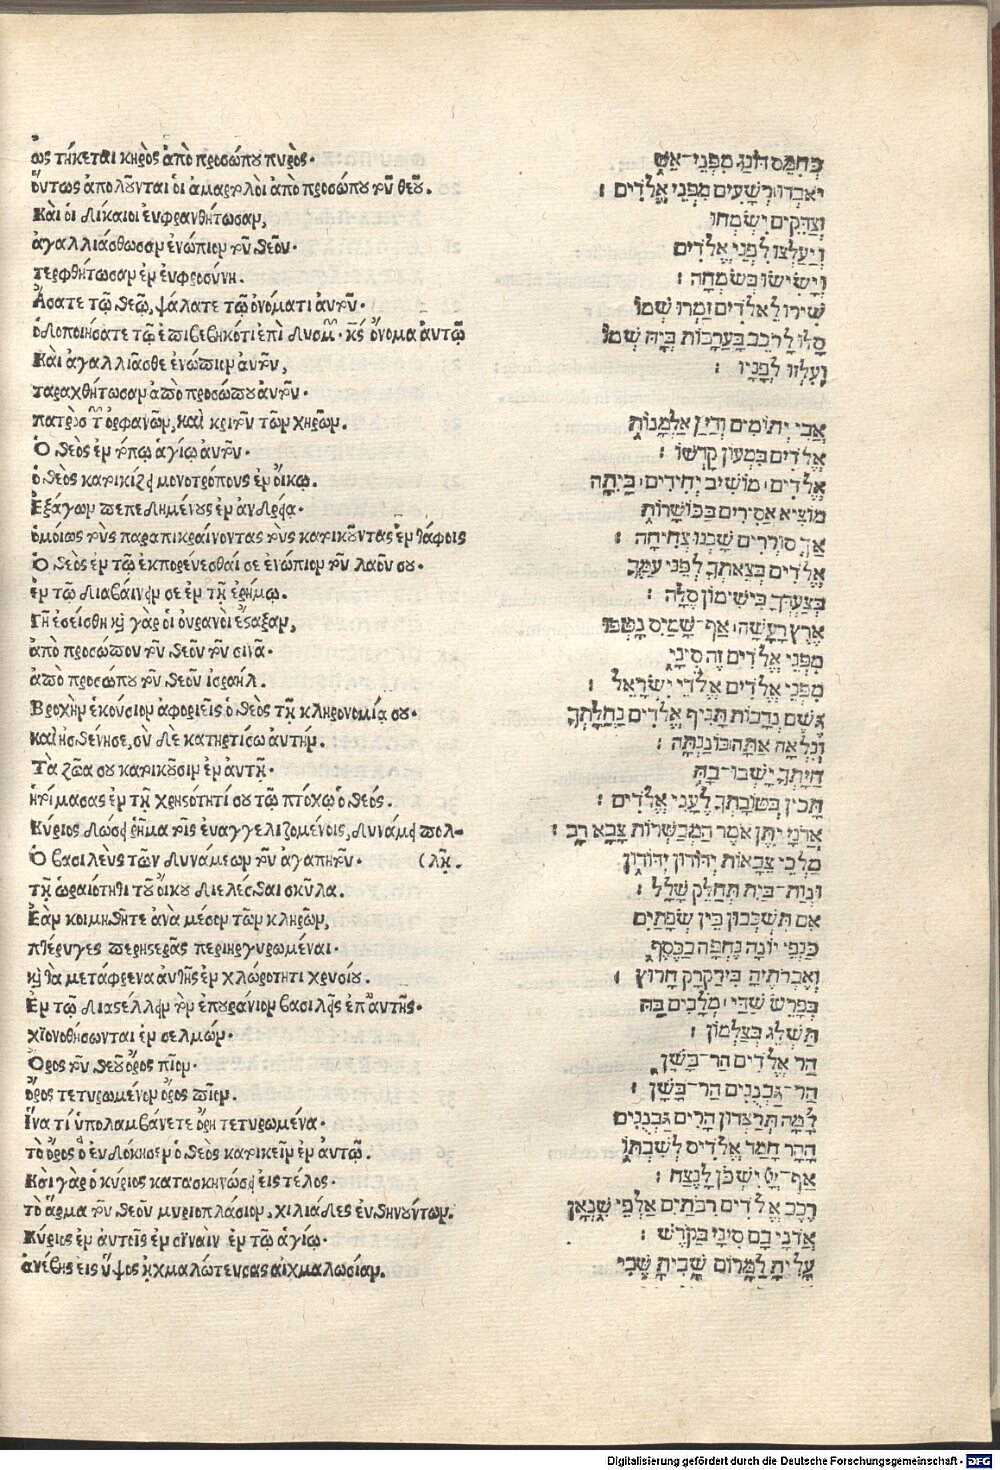 ὡς τήκεται κηρὸς ἀπὸ προσώπου πυρὸς·
ὅντως ἀπολοῦνται ὁι ἁμαρτωλὸι ἀπὸ προσώπου τοῦ θεοῦ.
Καὶ ὁι δίκαιοι ἐυφρανθήτωσαν,
ἀγαλλιάσθωσαν ἐνώπιον τοῦ θεοῦ·
τερφθήτωσαν ἐν ἐυφροσύνη.
Ἄσατε τῷ θεῷ, ψάλατε τῷ ὀνόματι ἀυτοῦ·
ὁδοποιήσατε τῷ ἐπιβεβηκότι ἐπὶ δυσμ κς ὄνομα ἀυτῷ
Καὶ ἀγαλλιᾶσθε ἐνώπιον ἀυτοῦ,
ταραχθήτωσαν ἀπὸ προσώπου ἀυτοῦ·
πατρὸς τ ὀρφανῶν, καὶ κριτοῦ τῶν χηρῶν.
Ὁ θεὸς ἐν τόπῳ ἁγίῳ ἀυτοῦ·
ὁ θεὸς κατοικίζει μονοτρόπους ἐν ὄικῳ.
Ἐξάγων πεπεδημένους ἐν ἀνδρεία·
ὁμοίως τοὺς παραπικραίνοντας τοὺς κατοικοῦντας ἐν τάφοις
Ὁ θεὸς ἐν τῷ ἐκπορέυεσθαί σε ἐνώπιον τοῦ λαοῦ σου·
ἐν τῷ διαβάινειν σε ἐν τῇ ἐρήμῳ.
Γῆ ἐσείσθη κ γὰρ ὁι ὀυρανοὶ ἔσταξαν,
ἀπὸ προσώπου τοῦ θεοῦ τοῦ σινᾶ·
ἀπὸ προσώπου τοῦ θεοῦ ἰσραήλ.
Βροχὴν ἑκούσιον ἀφοριεῖς ὁ θεὸς τῇ κληρονομίᾳ σου·
καὶ ησθένησε, σὺ δὲ κατηρτίσω ἀυτήν.
Τὰ ζῶα σου κατοικοῦσιν ἐν ἀυτῇ·
ἡτοίμασας ἐν τῇ χρηστότητί σου τῷ πτόχῳ ὁ θεός.
Κύριος δώσει ῥῆμα τοῖς ἐυαγγελιζομένοις, δυνάμει πολ-
Ὁ βασιλὲυς τῶν δυνάμεων τοῦ ἀγαπητοῦ· (λῇ.
τῇ ὡραιότητι τοῦ ὄικου διελέσθαι σκῦλα.
Ἐὰν κοιμηθῆτε ἀνὰ μέσον τῶν κλήρων,
πτέρυγες περιστερᾶς περιηργυρωμέναι·
κ τὰ μετάφρενα ἀυτῆς ἐν χλωρότητι χρυσίου.
Ἐν τῷ διαστέλλειν τὸν ἐπουράνιον βασιλεῖς ἐπ ἀυτῆς·
χιονοθήσονται ἐν σελμών·
Ὄρος τοῦ θεοῦ ὄρος πῖον·
ὄρος τετυρωμένον ὄρος πῖον.
Ἵνα τί ὑπολαμβάνετε ὄρη τετυρωμένα·
τὸ ὄρος ὃ ἐυδόκησεν ὁ θεὸς κατοικεῖν ἐν ἀυτῷ.
Καὶ γὰρ ὁ κύριος κατασκηνώσει εἰς τέλος·
τὸ ἅρμα τοῦ θεοῦ μυριοπλάσιον, χιλιάδες ἐυθηνούντων.
Κύριος ἐν ἀυτοῖς ἐν σῖναῒν ἐν τῷ ἁγίῳ·
ἀνέβης εἰς ὕψος ᾐχμαλώτευσας ἀιχμαλωσίαν.
כְּהִמֵּס דּוֹנַג מִפְּנֵי־אֵשׁ
יֹאבְדוּ רְשָׁעִים מִפְּנֵי אֱלֹדִים :
וְצַדִּקִים יִשְׂמְחוּ
וְיַעַלְצוּ לִפְנֵי אֱלֹדִים
וְיָשִׂישׂוּ בְּשִׂמְחָה :
שִׁירוּ לֵאלֹדִים זַמְּרוּ שְׁמוֹ
סֹלּוּ לָרֹכֵב בָּעֲרָבוֹת בְּיָהּ שְׁמוֹ
וְעִלְזוּ לְפָנָיו :
אֲבִי יְתוֹמִים וְדַיַּן אַלְמָנוֹת
אֱלֹדִים בִּמְעוֹן קָדְשׁוֹ :
אֱלֹדִים׀ מוֹשִׁיב יְחִידִים׀ בַּיְתָה
מוֹצִיא אֲסִירִים בַּכּוֹשָׁרוֹת
אַךְ סוֹרֲרִים שָׁכְנוּ צְחִיחָה :
אֱלֹדִים בְּצֵאתְךָ לִפְנֵי עַמֶּךָ
בְּצַעְדְּךָ בִישִׁימוֹן סֶלָה :
אֶרֶץ רָעָשָׁה׀ אַף־שָׁמַיִם נָטְפוּ
מִפְּנֵי אֱלֹדִים זֶה סִינַי
מִפְּנֵי אֱלֹדִים אֱלֹדֵי יִשְׂרָאֵל :
גֶּשֶׁם נְדָבוֹת תָּנִיף אֱלֹדִים נַחֲלָתְךָ
וְנִלְאָה אַתָּה כוֹנַנְתָּהּ :
חַיָּתְךָ יָשְׁבוּ־בָהּ
תָּכִין בְּטוֹבָתְךָ לֶעָנִי אֱלֹדִים :
אֲדֹנָי יִתֶּן אֹמֶר הַמְבַשְּׂרוֹת צָבָא רָב :
מַלְכֵי צְבָאוֹת יִדֹּדוּן יִדֹּדוּן
וּנְוַת־בַּיִת תְּחַלֵּק שָׁלָל :
אִם תִּשְׁכְּבוּן בֵּין שְׂפַתַּיִם
כַּנְפֵי יוֹנָה נֶחְפָּה בַכֶּסֶף
וְאֶבְרוֹתֶיהָ בִּירַקְרַק חָרוּץ :
בְּפָרֵשׂ שַׁדַּי׀ מְלָכִים בָּהּ
תַּשְׁלֵג בְּצַלְמוֹן :
הַר אֱלֹדִים הַר־בָּשָׁן
הַר־גַּבְנֻנִּים הַר־בָּשָׁן :
לָמָּה תְּרַצְּדוּן הָרִים גַּבְנֻנִּים
הָהָר חָמַד אֱלֹדִים לְשִׁבְתּוֹ
אַף־יְיָ יִשְׁכֹּן לָנֶצַח :
רֶכֶב אֱלֹדִים רִבֹּתַיִם אַלְפֵי שִׁנְאָן
אֲדֹנָי בָם סִינַי בַּקֹּדֶשׁ :
עָלִיתָ לַמָּרוֹם שָׁבִיתָ שֶּׁבִי
Digitalisierung gefördert durch die Deutsche Forschungsgemeinschaft - DFG